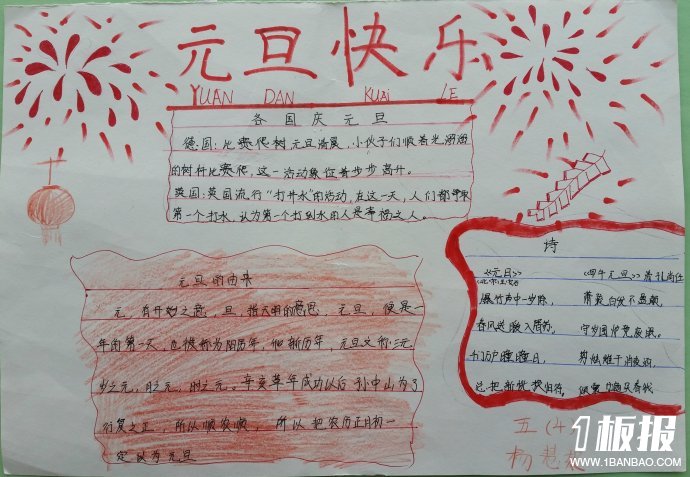 元旦快乐
YUAN DAN KUAI LE
各国庆元旦
德国：比赛爬树元旦活展，小伙子们顺着光溜溜
的树杆比赛爬，这一活动象征着步步高升。
英国：英国流行“打井水”的活动，在这一天，人们都争取
第一个打水，认为第一个打到水的人是幸福之人。
元旦的由来
元，有开始之意，旦，指天明的意思，元旦，便是一
年的第一天，也被称为阳历年，他新历年，元旦又称：三元
岁之元，月之元，时之元。辛亥革年成功以后孙中山为了
行夏之正，所以顺农顺，所以把农历正月初一
定以为元旦
诗
《元日》
北宋王安石
爆竹声中一岁除，
春风送暖入屠苏，
千门万户瞳瞳日，
总把新桃换旧符。
《四年元旦》清孔尚任
萧疏白发不盈颠，
守岁围炉竟废眠。
剪烛催干消夜酒，
五(4
杨慧
1板报
WWW.1BANBAO.COM